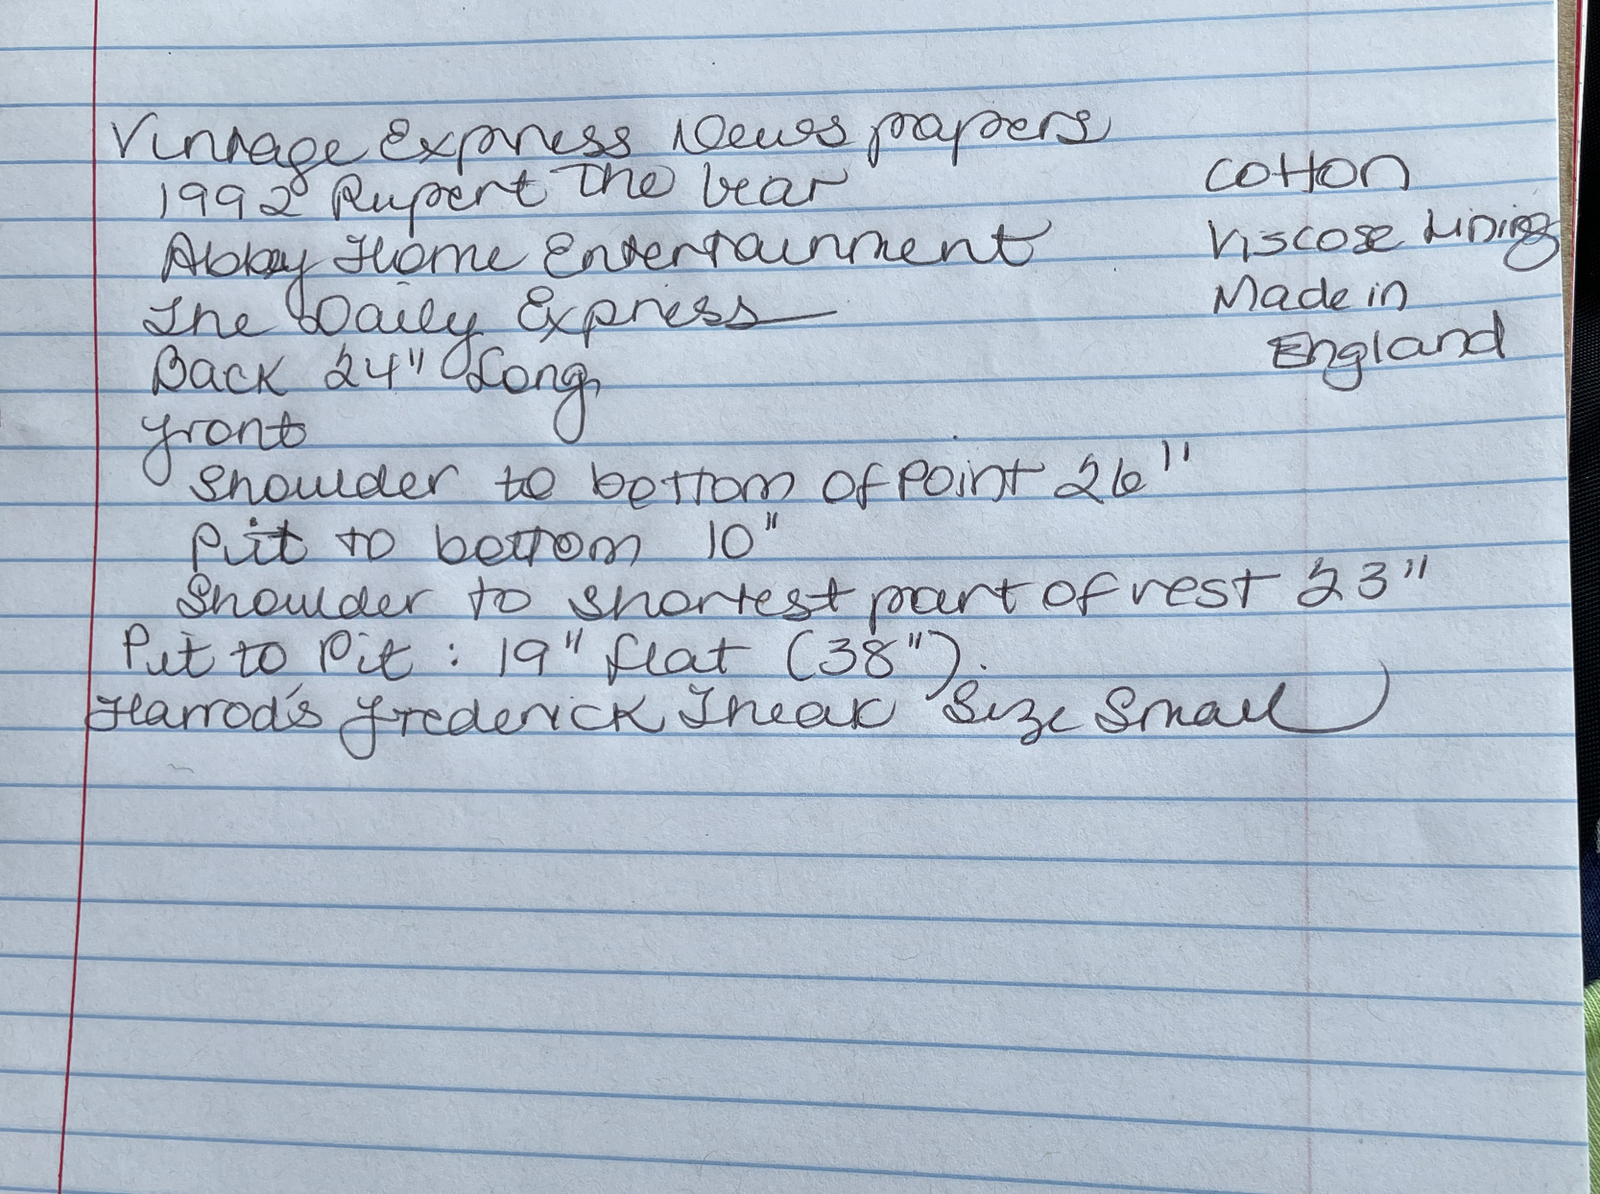 Vintage Express Newspapers
1992 Rupert The bear
Abbey Home Entertainment
The Daily Express
Back 24" Long
front
Shoulder to bottom of Point 26"
Pit to bottom 10"
Shoulder to shortest part of vest 23"
Pit to Pit : 19" flat (38").
Harrod's Frederick Theak Size Small
cotton
Viscose Lining
Made in
England